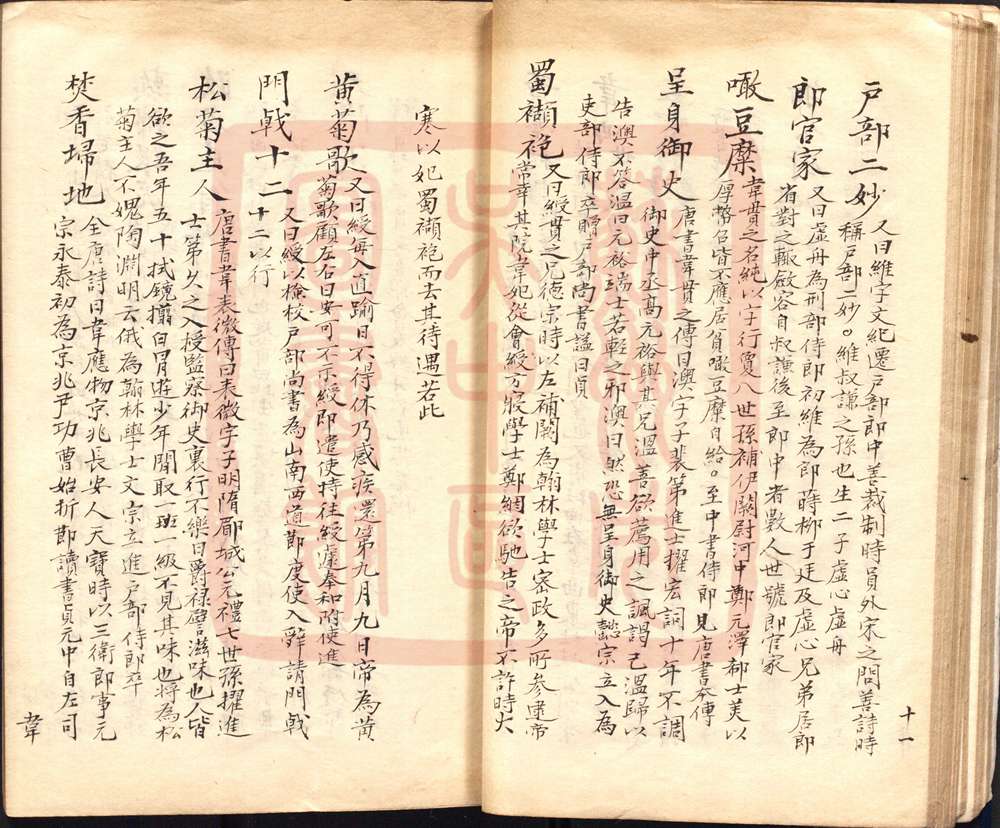 戶部二妙 又曰維字文紀遷戶部郎中善裁制時員外宋之問善詩時
稱戶部二妙。維叔謙之孫也生二子虛心虛舟
郎官家 又曰虛舟為刑部侍郎初維為郎蒔柳于廷及虛心兄弟居郎
省對之輙斂容自叔謙後至郎中者數人世號郎官家
噉豆糜 韋貫之名純以字行敻八世孫補伊闕尉河中鄭元澤鄰士美以
厚幣召皆不應居貧噉豆糜自給。至中書侍郎見唐書夲傳
呈身御史 唐書韋貫之傳曰澳字子裴第進士擢宏詞十年不調
御史中丞高元裕與其兄溫善欲薦用之諷謁己溫歸以
告澳不答溫曰元裕端士若輕之邪澳曰然恐無呈身御史懿宗立入為
吏部侍郎卒贈戶部尚書諡曰貞
蜀襭袍 又曰綬貫之兄德宗時以左補闕為翰林學士密政多所參逮帝
常幸其院韋妃從會綬方寢學士鄭絪欲馳告之帝不許時大
寒以妃蜀襭袍而去其待遇若此
黄菊歌 又曰綬每入直踰日不得休乃感疾還第九月九日帝為黃
菊歌顧左右曰安可不示綬即遣使持往綬遽奉和附使進
門戟十二 又曰綬以檢校戶部尚書為山南西道節度使入辭請門戟
十二以行
松菊主人 唐書韋表微傳曰表微字子明隋郿城公元禮七世孫擢進
士第久之入授監察御史裏行不樂曰爵祿譬滋味也人皆
欲之吾年五十拭鏡擃白冒遊少年間取一班一級不見其味也將為松
菊主人不媿陶淵明云俄為翰林學士文宗立進戶部侍郎卒
焚香埽地 全唐詩曰韋應物京兆長安人天寶時以三衛郎事元
宗永泰初為京兆尹功曹始折節讀書貞元中自左司
十一
韋